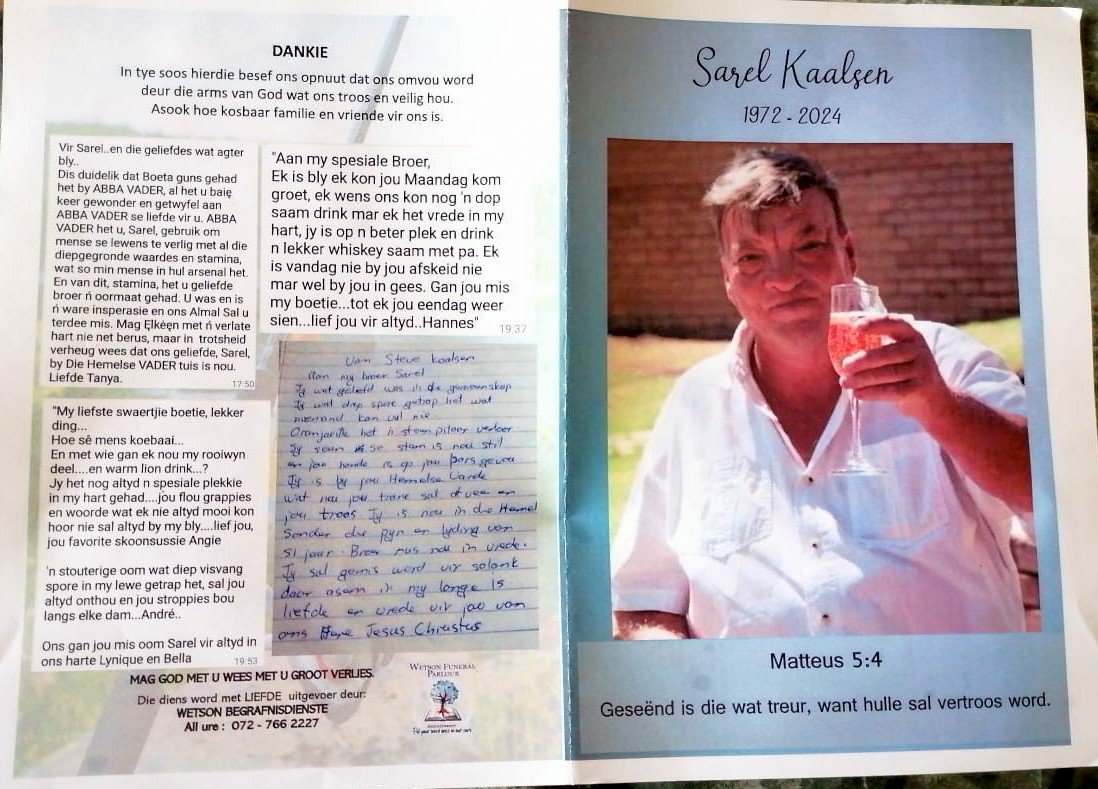 DANKIE
In tye soos hierdie besef ons opnuut dat ons omvou word
deur die arms van God wat ons troos en veilig hou.
Asook hoe kosbaar familie en vriende vir ons is.
Vir Sarel..en die geliefdes wat agter
bly..
Dis duidelik dat Boeta guns gehad
het by ABBA VADER, al het u baię
keer gewonder en getwyfel aan
ABBA VADER se liefde vir u. ABBA
VADER het u, Sarel, gebruik om
mense se lewens te verlig met al die
diepgegronde waardes en stamina,
wat so min mense in hul arsenal het.
En van dit, stamina, het u geliefde
broer ń oormaat gehad. U was en is
ń ware insperasie en ons Almal Sal u
terdee mis. Mag Ęlkėęn met ń verlate
hart nie net berus, maar in trotsheid
verheug wees dat ons geliefde, Sarel,
by Die Hemelse VADER tuis is nou.
Liefde Tanya.
17:50
"My liefste swaertjie boetie, lekker
ding...
Hoe sê mens koebaai...
En met wie gan ek nou my rooiwyn
deel....en warm lion drink...?
Jy het nog altyd n spesiale plekkie
in my hart gehad....jou flou grappies
en woorde wat ek nie altyd mooi kon
hoor nie sal altyd by my bly....lief jou,
jou favorite skoonsussie Angie
'n stouterige oom wat diep visvang
spore in my lewe getrap het, sal jou
altyd onthou en jou stroppies bou
langs elke dam...André..
Ons gan jou mis oom Sarel vir altyd in
ons harte Lynique en Bella
19:53
"Aan my spesiale Broer,
Ek is bly ek kon jou Maandag kom
groet, ek wens ons kon nog 'n dop
saam drink mar ek het vrede in my
hart, jy is op n beter plek en drink
n lekker whiskey saam met pa. Ek
is vandag nie by jou afskeid nie
mar wel by jou in gees. Gan jou mis
my boetie...tot ek jou eendag weer
sien...lief jou vir altyd..Hannes"
19:37
Van Steve Kaalsen
Aan my broer Sarel
Jy wat geliefd was in die gemeenskap
Jy wat diep spore getrap het wat
niemand kan vul nie.
Oranjeville het 'n steunpilaar verloor
Jy stem is nou stil
en jou hande is op jou bors gevou
Jy is by jou Hemelse Vader
Wat nou jou trane sal afvee en
jou troos Jy is nou in die Hemel
Sonder die pyn en lyding van
51 jaar. Broer rus nou in vrede.
Jy sal gemis word vir solank
daar asem in my longe is
liefde en vrede vir jou van
ons Here Jesus Christus
MAG GOD MET U WEES MET U GROOT VERLIES.
Die diens word met LIEFDE uitgevoer deur:
WETSON BEGRAFNISDIENSTE
All ure : 072 - 766 2227
WETSON FUNERAL
PARLOUR
Sarel Kaalsen
1972 - 2024
Matteus 5:4
Geseënd is die wat treur, want hulle sal vertroos word.